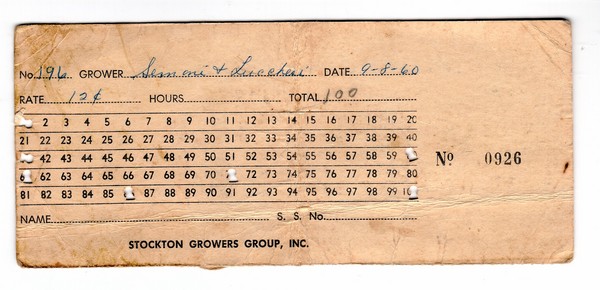 No. 196 GROWER Simoni & Luccheri DATE 9-8-60
RATE 12¢ HOURS TOTAL 100
2 3 4 5 6 7 8 9 10 11 12 13 14 15 16 17 18 19 20
21 22 23 24 25 26 27 28 29 30 31 32 33 34 35 36 37 38 39 40
42 43 44 45 46 47 48 49 50 51 52 53 54 55 56 57 58 59
No 0926
62 63 64 65 66 67 68 69 70 72 73 74 75 76 77 78 79 80
81 82 83 84 85 87 88 89 90 91 92 93 94 95 96 97 98 99 10
NAME S. S. No.
STOCKTON GROWERS GROUP, INC.